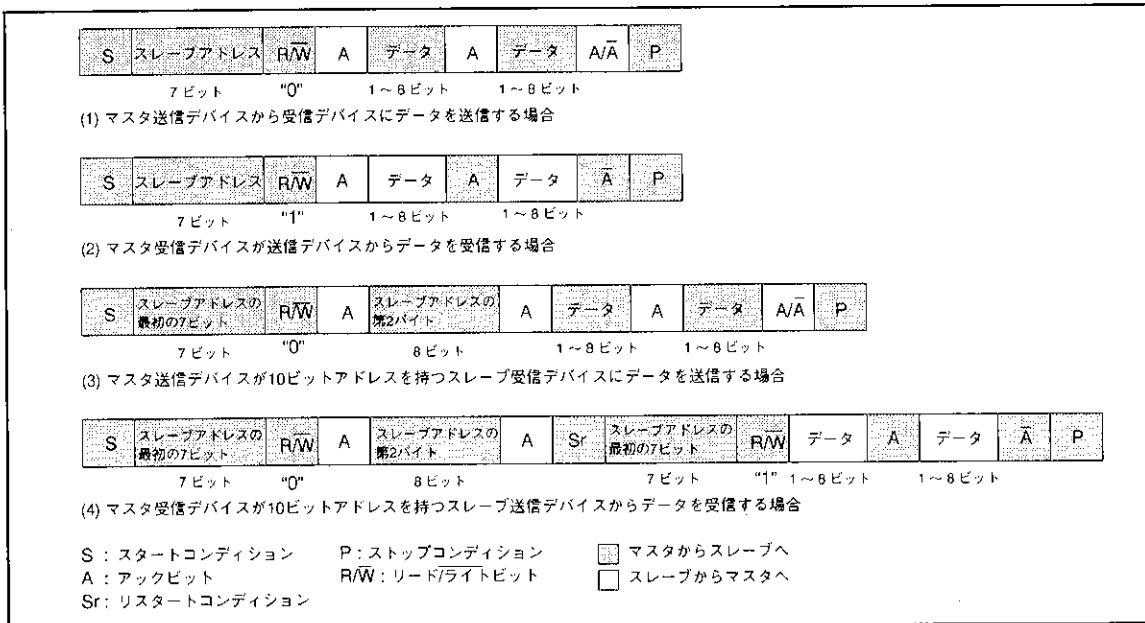 S スレーブアドレス R/W̅ A データ A データ A/A̅ P
7ビット "0" 1～8ビット 1～8ビット
(1) マスタ送信デバイスから受信デバイスにデータを送信する場合
S スレーブアドレス R/W̅ A データ A データ A̅ P
7ビット "1" 1～8ビット 1～8ビット
(2) マスタ受信デバイスが送信デバイスからデータを受信する場合
S スレーブアドレスの最初の7ビット R/W̅ A スレーブアドレスの第2バイト A データ A データ A/A̅ P
7ビット "0" 8ビット 1～8ビット 1～8ビット
(3) マスタ送信デバイスが10ビットアドレスを持つスレーブ受信デバイスにデータを送信する場合
S スレーブアドレスの最初の7ビット R/W̅ A スレーブアドレスの第2バイト A Sr スレーブアドレスの最初の7ビット R/W̅ データ A データ A̅ P
7ビット "0" 8ビット 7ビット "1" 1～8ビット 1～8ビット
(4) マスタ受信デバイスが10ビットアドレスを持つスレーブ送信デバイスからデータを受信する場合
S : スタートコンディション P : ストップコンディション マスタからスレーブへ
A : アックビット R/W̅ : リード/ライトビット スレーブからマスタへ
Sr : リスタートコンディション